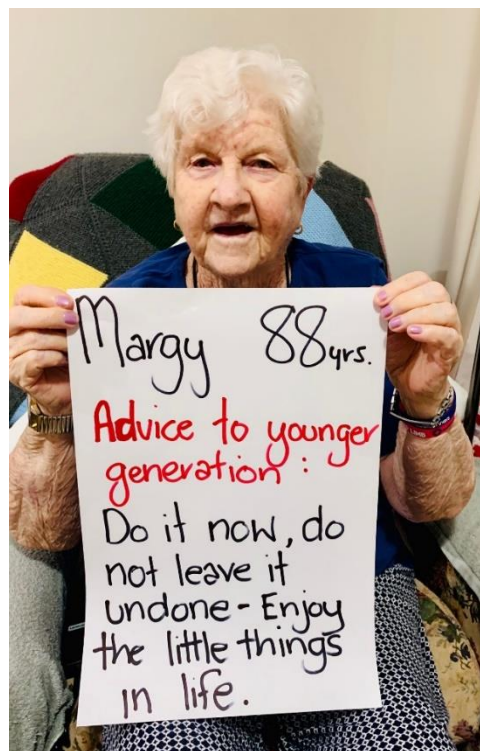 Margy 88yrs.
Advice to younger
generation :
Do it now, do
not leave it
undone - Enjoy
the little things
in life.